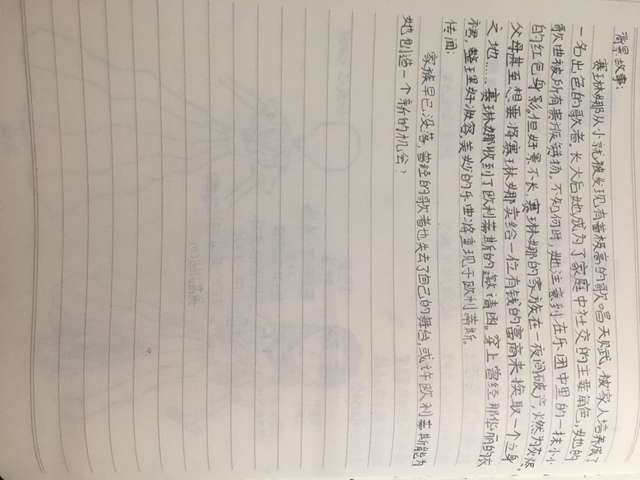 背景故事:
赛琳娜从小就被发现有着极高的歌唱天赋,被家人培养成了
一名出色的歌者。长大后她成为了家庭中社交的主要角色,她的
歌曲被所有贵族赞扬。不知何时,她注意到在乐团中里的一抹小小
的红色身影。但好景不长,赛琳娜的家族在一夜间破产,燃为灰烬
父母甚至想要将赛琳娜卖给一位有钱的富商来换取一个立身
之地……赛琳娜收到了欧利蒂斯的邀请函。穿上曾经那华丽的衣
裙,整理好妆容,美妙的乐曲将重现于欧利蒂斯。
传闻:
家族早已没落,曾经的歌者也失去了自己的舞台,或许欧利蒂斯能为
她创造一个新的机会?